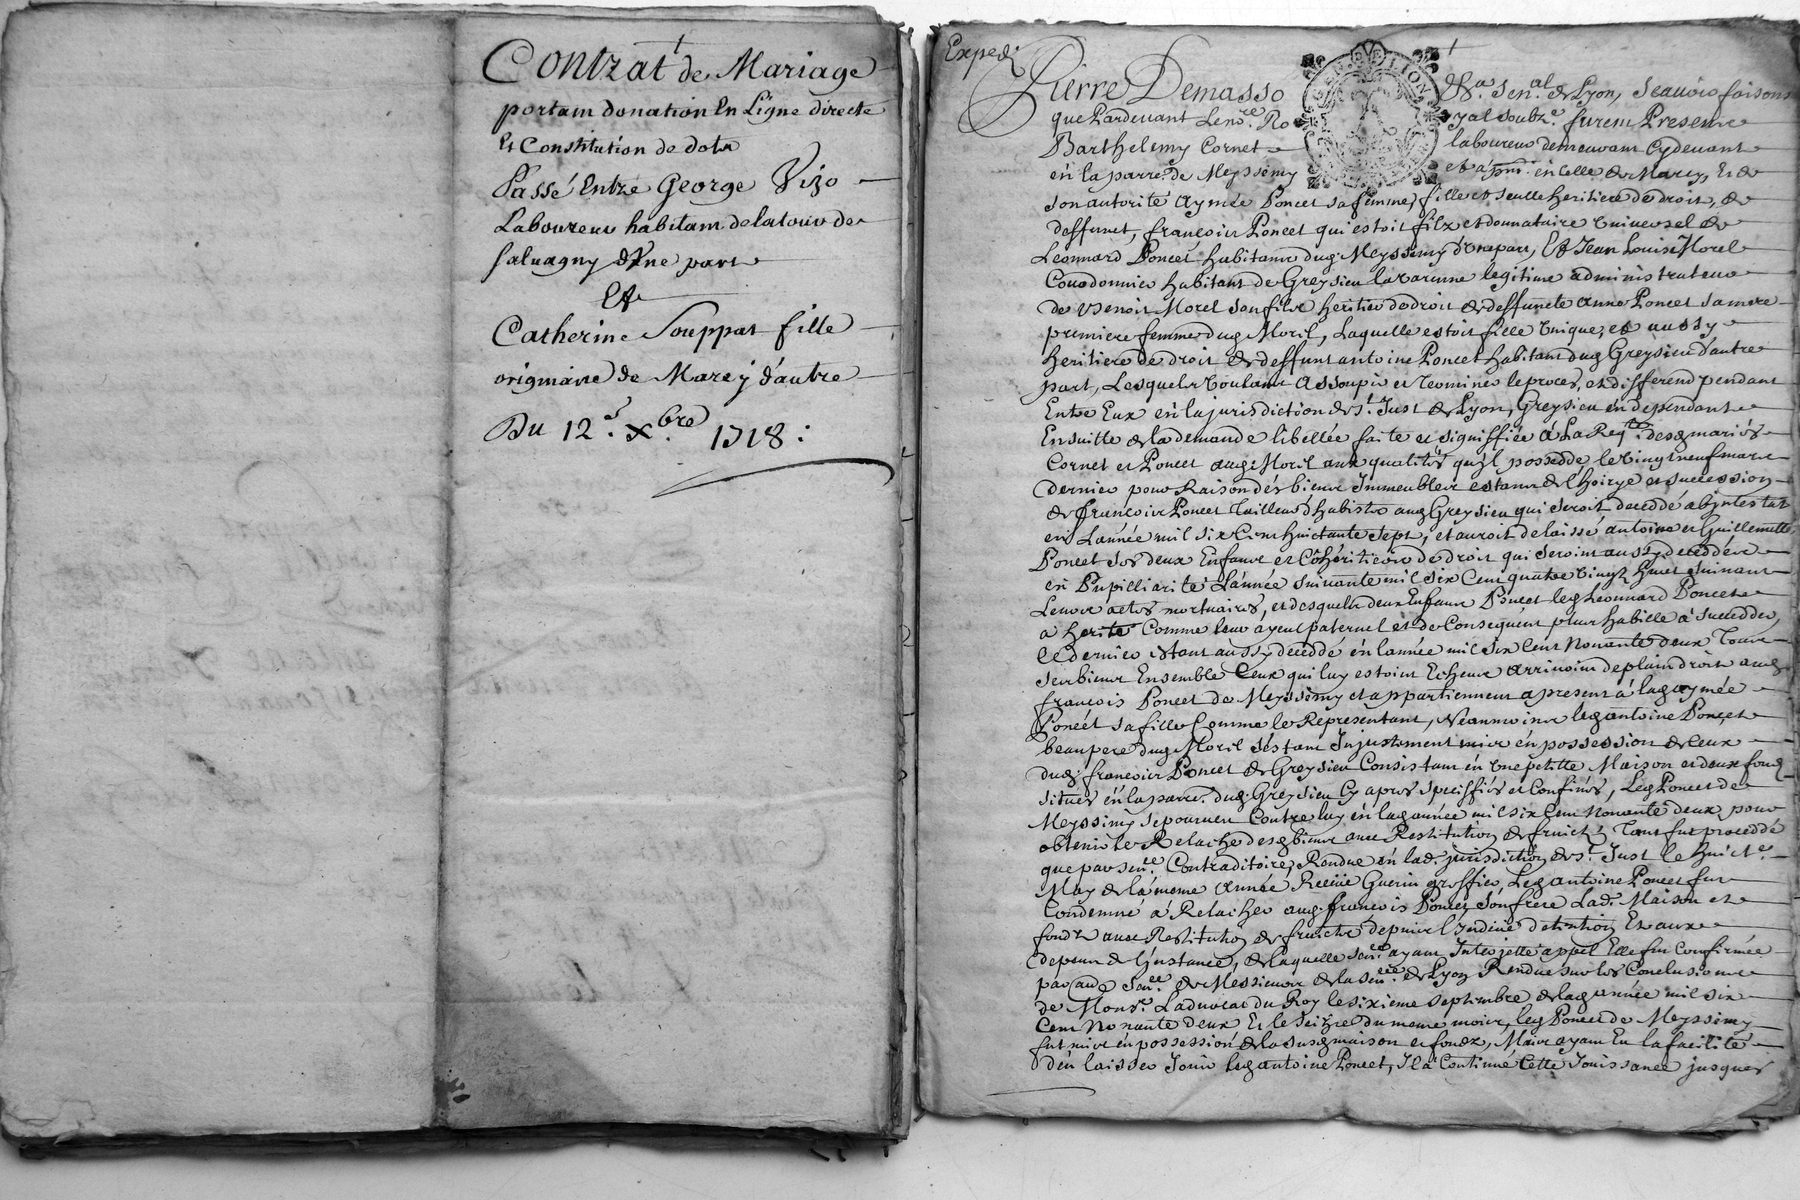 Contrat de Mariage
portant donation En Ligne directe
Et Constitution de dote
Passé Entre George Vizo
Laboureur habitant de latour de
salvagny d'Une part
Et
Catherine Souppat fille
originaire de Marcy d'autre
Du 12e. Xbre 1718:
Exped.
Pierre Demasso
GEN. DE LION
&a. Senal. de Lyon, Scavoir faisons
que Pardevant Lenore. Ro yal soubzé. furent Presents
Barthelemy Cornet laboureur demeurant Cydevant
en la parre. de Meyssemy et àpnt. en celle de Marcy, Et de
son autorité Aymée Poncet sa femme, fille et seulle heritiere de droit, de
deffunct, françois Poncet qui estoit filz et donnataire Universel de
Léonnard Poncet habitant dud. Meyssimy d'Une part, Et Jean Louis Morel
Couodonnier habitant de Greysieu la Varenne legitime administrateur
de Benoit Morel son filz heritier de droit de deffuncte Anne Poncet sa mere
premiere femme dud. Moril, Laquelle estoit fille Unique, et aussy
heritiere de droit de deffunt antoine Poncet habitant dud. Greysieu d'autre
part, Lesquels Voulant Assoupir et terminer le proces, et different pendant
Entre Eux en la jurisdiction de st. Just de Lyon, Greysieu en dependant
Ensuitte de la demande libellée faite et signiffiée à La Reqte. desd. mariés
Cornet et Poncet aud. Moril aux qualités qu'il possedde le Vingt neuf mars
dernier pour Raison des biens Immeubles estants de l'hoirye et succession
de francois Poncet Tailleur d'habists aud. Greysieu qui seroit deceddé abintestat
en L'année mil six Cent huictante sept, et auroit delaissé antoine et Guillemette
Poncet ses deux Enfants et Cohéritiers de droit qui seroint aussy deceddés
en Pupilliarité L'année suivante mil six Cent quatre Vingt huit suivant
Leurs actes mortuaires, et desquels deux Enfants Poncet led. Leonnard Poncet
a herité Comme leur ayeul paternel et de Consequent plus habille à succedder,
ce dernier estant aussy deceddé en l'année mil six Cent Nonante deux Tous
ses biens Ensemble Ceux qui luy estoint Echeus arrivoint de plain droit aud.
francois Poncet de Meyssimy et appartiennent a present à lad. aymée
Poncet sa fille Comme le Representant, Neanmoins led. antoine Poncet
beaupere dud. Moril s'estant Injustement mis en possession de Ceux
dud. francois Poncet de Greysieu Consistant en Une petitte Maison et deux fond
situés en la parre. dud. Greysieu Cy apres speciffiés et Confinés, Led. Poncet de
Meyssimy se pourveu Contre luy en lad. année mil six Cent Nonante deux pour
obtenir le Relache desd. biens avec Restitution de fruicts, Tant fut proceddé
que par snce. Contraditoire, Rendue en lad. jurisdiction de st. Just le huicte.
May de la meme Année Guerin greffier, Led. antoine Poncet fut
Condemné à Relacher aud. francois Poncet, son frere Lad. Maison et
fondz avec Restitution de fruicts depuis l'Induë detention Et aux
depens de l'Instance, de laquelle snce. ayant Interjetté appel Elle fut Confirmée
par autre snce. de Messieurs de la Senée. de Lyon Rendue sur les Conclusions
de Monsr. Ladvocat du Roy le sixieme septembre de lad. année mil six
Cent Nonante deux Et le seizre du meme mois, led. Poncet de Meyssimy
fut mis en possession de la susd. maison et fondz, Mais ayant Eu la facilité
d'en laisser Jouir led. antoine Poncet, Il a Continué Cette Jouissance jusques